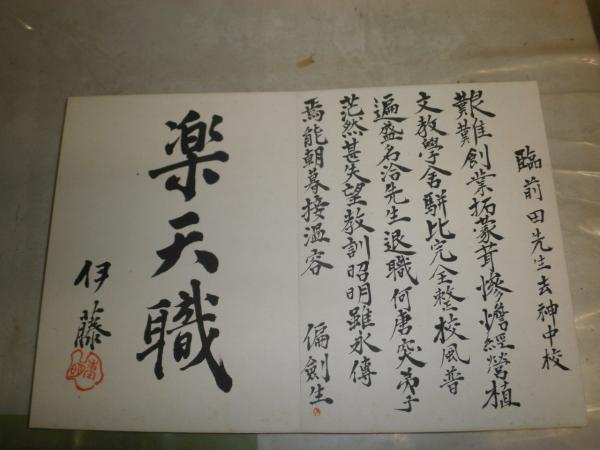 臨前田先生去神中校
艱難創業拓蒙茸慘憺經營植
文教學舍駢比完全整校風普
遍盛名洽先生退職何唐突夷子
茫然甚失望教訓昭明雖永傳
焉能朝暮接溫容
偏劍生
楽天職
伊藤